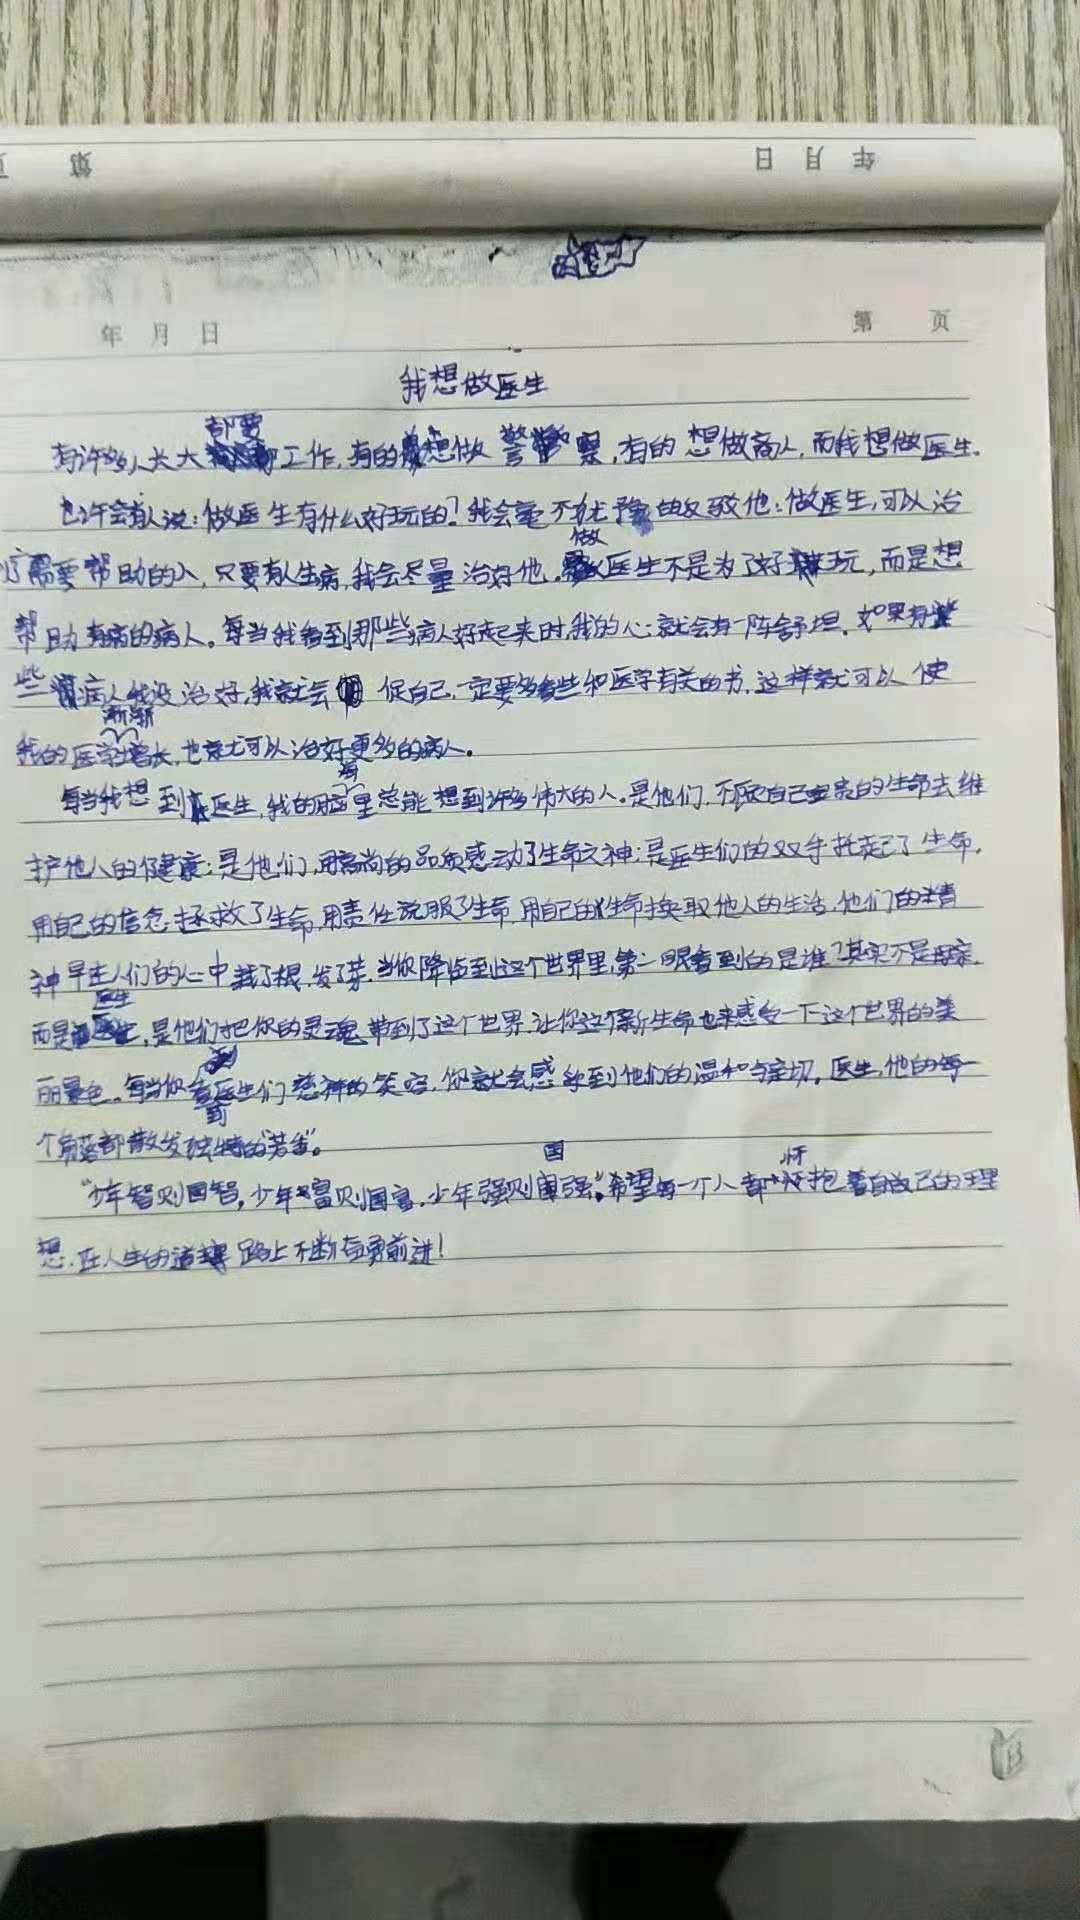 第 页
年 月 日
年 月 日
第 页
我想做医生
有许多人长大都要工作,有的想做警察,有的想做商人,而我想做医生.
也许会有人说:做医生有什么好玩的?我会毫不犹豫的反驳他:做医生,可以治
疗需要帮助的人,只要有人生病,我会尽量治好他.做医生不是为了好玩,而是想
帮助有病的病人。每当我看到那些病人好起来时,我的心就会有一阵舒坦.如果有
些病人我没治好,我就会 促自己,一定要多看些和医学有关的书.这样就可以使
我的医学渐渐增长,也就可以治好更多的病人.
每当我想到医生,我的脑海里总能想到许多伟大的人.是他们,不顾自己宝贵的生命去维
护他人的健康;是他们,用高尚的品质感动了生命之神;是医生们的双手托起了生命,
用自己的信念拯救了生命,用责任说服了生命,用自己的生命换取他人的生活.他们的精
神早在人们的心中栽了根,发了芽.当你降临到这个世界里,第一眼看到的是谁?其实不是母亲,
而是医生,是他们把你的灵魂带到了这个世界.让你这个新生命也来感受一下这个世界的美
丽景色。每当你看到医生们慈祥的笑容,你就会感受到他们的温和与亲切.医生,他的每一
个角落都散发独特的"芳香"。
"少年智则国智,少年富则国富.少年强则国强".希望每一个人都怀抱着自己的理
想.在人生的道路上不断奋勇前进!